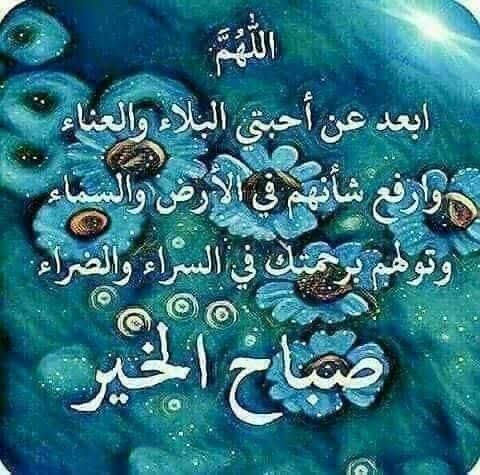 اللَّهُمَّ
ابعد عن أحبتي البلاء والعناء
وارفع شأنهم في الأرض والسماء
وتولهم برحمتك في السراء والضراء
صباح الخير